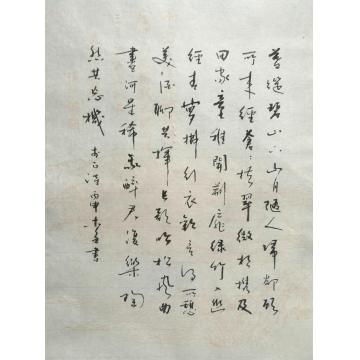 暮從碧山下山月隨人歸卻顧
所来經蒼蒼橫翠微相携及
田家童稚開荆扉綠竹入幽
經青蘿拂行衣歡言得所憩
美酒聊共揮長歌吟松風曲
盡河星稀我醉君復樂陶
然共忘機 李白詩丙申